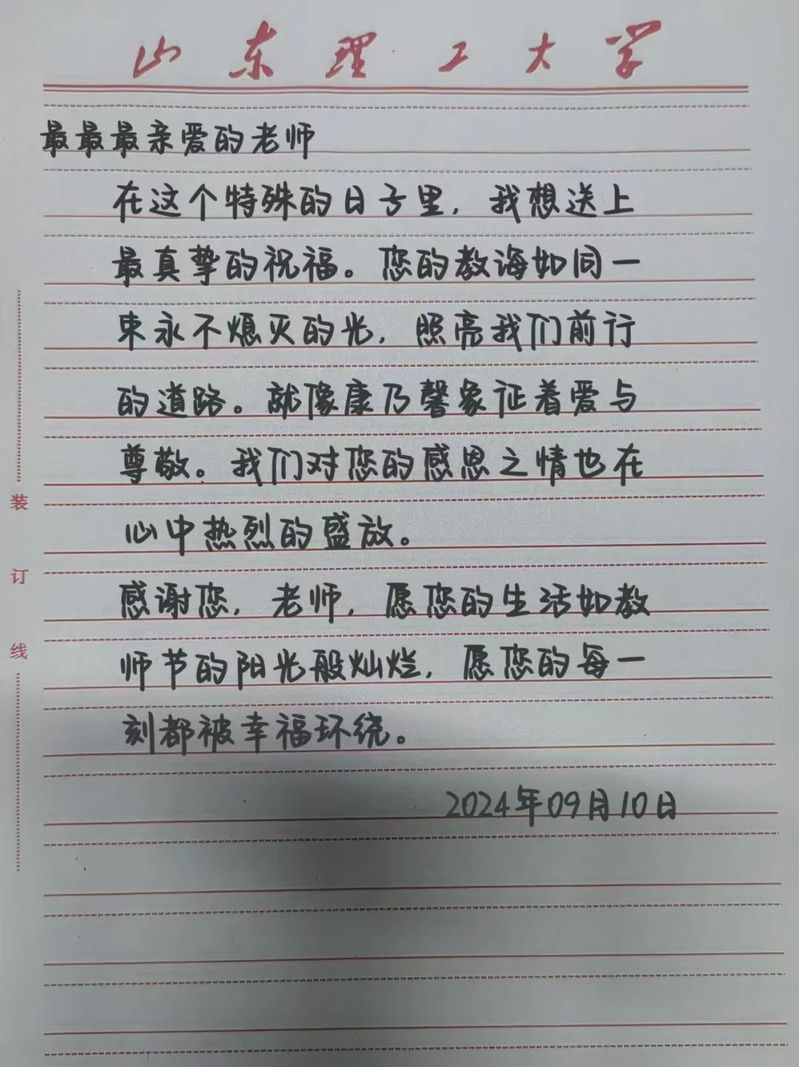 山东理工大学
最最最亲爱的老师
在这个特殊的日子里，我想送上
最真挚的祝福。您的教诲如同一
束永不熄灭的光，照亮我们前行
的道路。就像康乃馨象征着爱与
尊敬。我们对您的感恩之情也在
心中热烈的盛放。
感谢您，老师，愿您的生活如教
师节的阳光般灿烂，愿您的每一
刻都被幸福环绕。
2024年09月10日
装
订
线